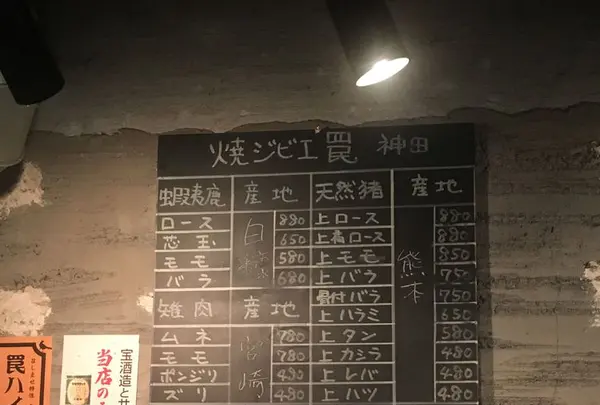 焼ジビエ 罠 神田
蝦夷鹿 産地 天然猪 産地
ロース 880 上ロース 880
芯玉 650 上肩ロース 880
モモ 580 上モモ 850
バラ 680 上バラ 750
白糠
熊本
雉肉 産地 骨付バラ 750
上ハラミ 650
ムネ 780 上タン 580
モモ 780 上カシラ 480
ポンジリ 480 上レバ 480
ズリ 480 上ハツ 480
宮崎
罠ハイ
宝酒造と
当店の